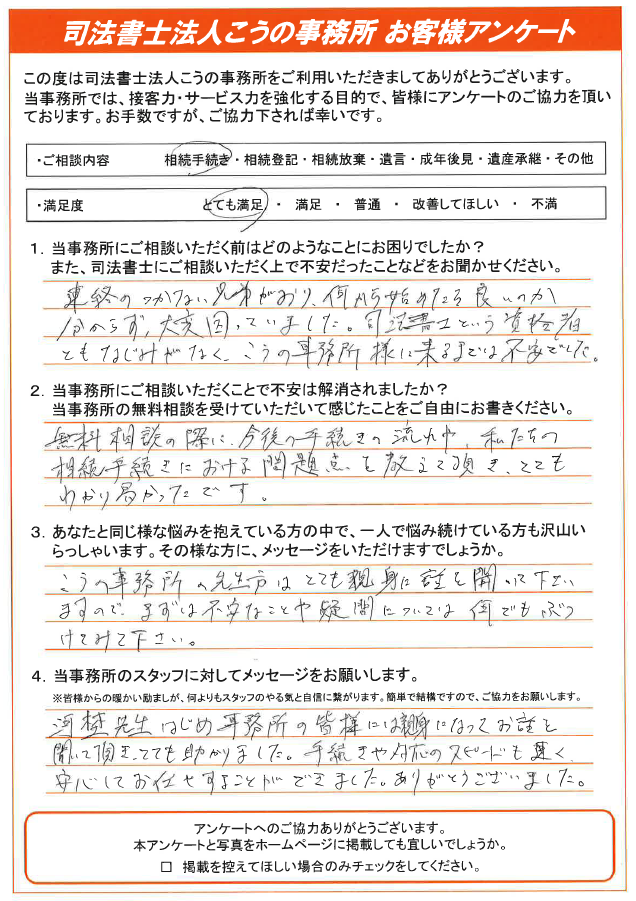 司法書士法人こうの事務所 お客様アンケート
この度は司法書士法人こうの事務所をご利用いただきましてありがとうございます。
当事務所では、接客力・サービス力を強化する目的で、皆様にアンケートのご協力を頂い
ております。お手数ですが、ご協力下されば幸いです。
・ご相談内容 相続手続き・相続登記・相続放棄・遺言・成年後見・遺産承継・その他
・満足度 とても満足 ・ 満足 ・ 普通 ・ 改善してほしい ・ 不満
1. 当事務所にご相談いただく前はどのようなことにお困りでしたか？
また、司法書士にご相談いただく上で不安だったことなどをお聞かせください。
連絡のつかない兄弟がおり、何から始めたら良いのか
分からず、大変困っていました。司法書士という資格者
ともなじみがなく、こうの事務所様に来るまでは不安でした。
2. 当事務所にご相談いただくことで不安は解消されましたか？
当事務所の無料相談を受けていただいて感じたことをご自由にお書きください。
無料相談の際に、今後の手続きの流れや、私たちの
相続手続きにおける問題点を教えて頂き、とても
わかり易かったです。
3. あなたと同じ様な悩みを抱えている方の中で、一人で悩み続けている方も沢山い
らっしゃいます。その様な方に、メッセージをいただけますでしょうか。
こうの事務所の先生方はとても親身に話を聞いて下さい
ますので、まずは不安なことや疑問については何でもぶつ
けてみて下さい。
4. 当事務所のスタッフに対してメッセージをお願いします。
※皆様からの暖かい励ましが、何よりもスタッフのやる気と自信に繋がります。簡単で結構ですので、ご協力をお願いします。
河埜先生はじめ事務所の皆様には親身になってお話を
聞いて頂き、とても助かりました。手続きや対応のスピードも速く、
安心してお任せすることができました。ありがとうございました。
アンケートへのご協力ありがとうございます。
本アンケートと写真をホームページに掲載しても宜しいでしょうか。
□ 掲載を控えてほしい場合のみチェックをしてください。